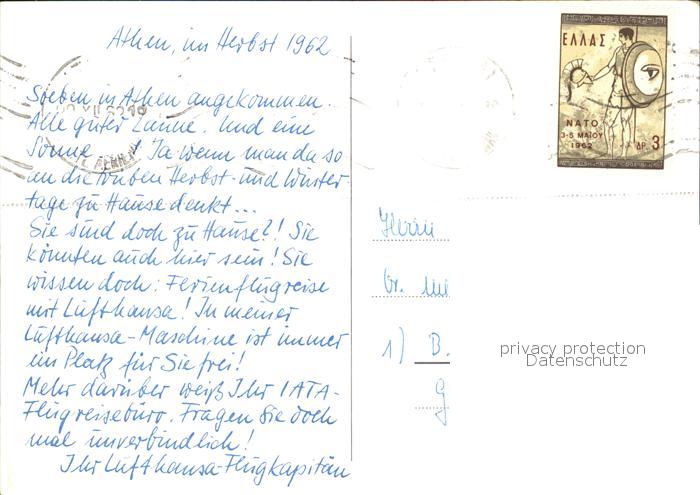 Athen, im Herbst 1962
Soeben in Athen angekommen.
Alle guter Laune. Und eine
Sonne! Ja wenn man da so
an die trüben Herbst- und Winter
tage zu Hause denkt...
Sie sind doch zu Hause?! Sie
könnten auch hier sein! Sie
wissen doch: Ferienflugreise
mit Lufthansa! In meiner
Lufthansa-Maschine ist immer
ein Platz für Sie frei!
Mehr darüber weiß Ihr IATA-
Flugreisebüro. Fragen Sie doch
mal unverbindlich!
Ihr Lufthansa-Flugkapitän
ΕΛΛΑΣ
ΝΑΤΟ
3-5 ΜΑΪΟΥ
1962
ΔΡ. 3
Herrn
Dr. 
1) B.
privacy protection
Datenschutz